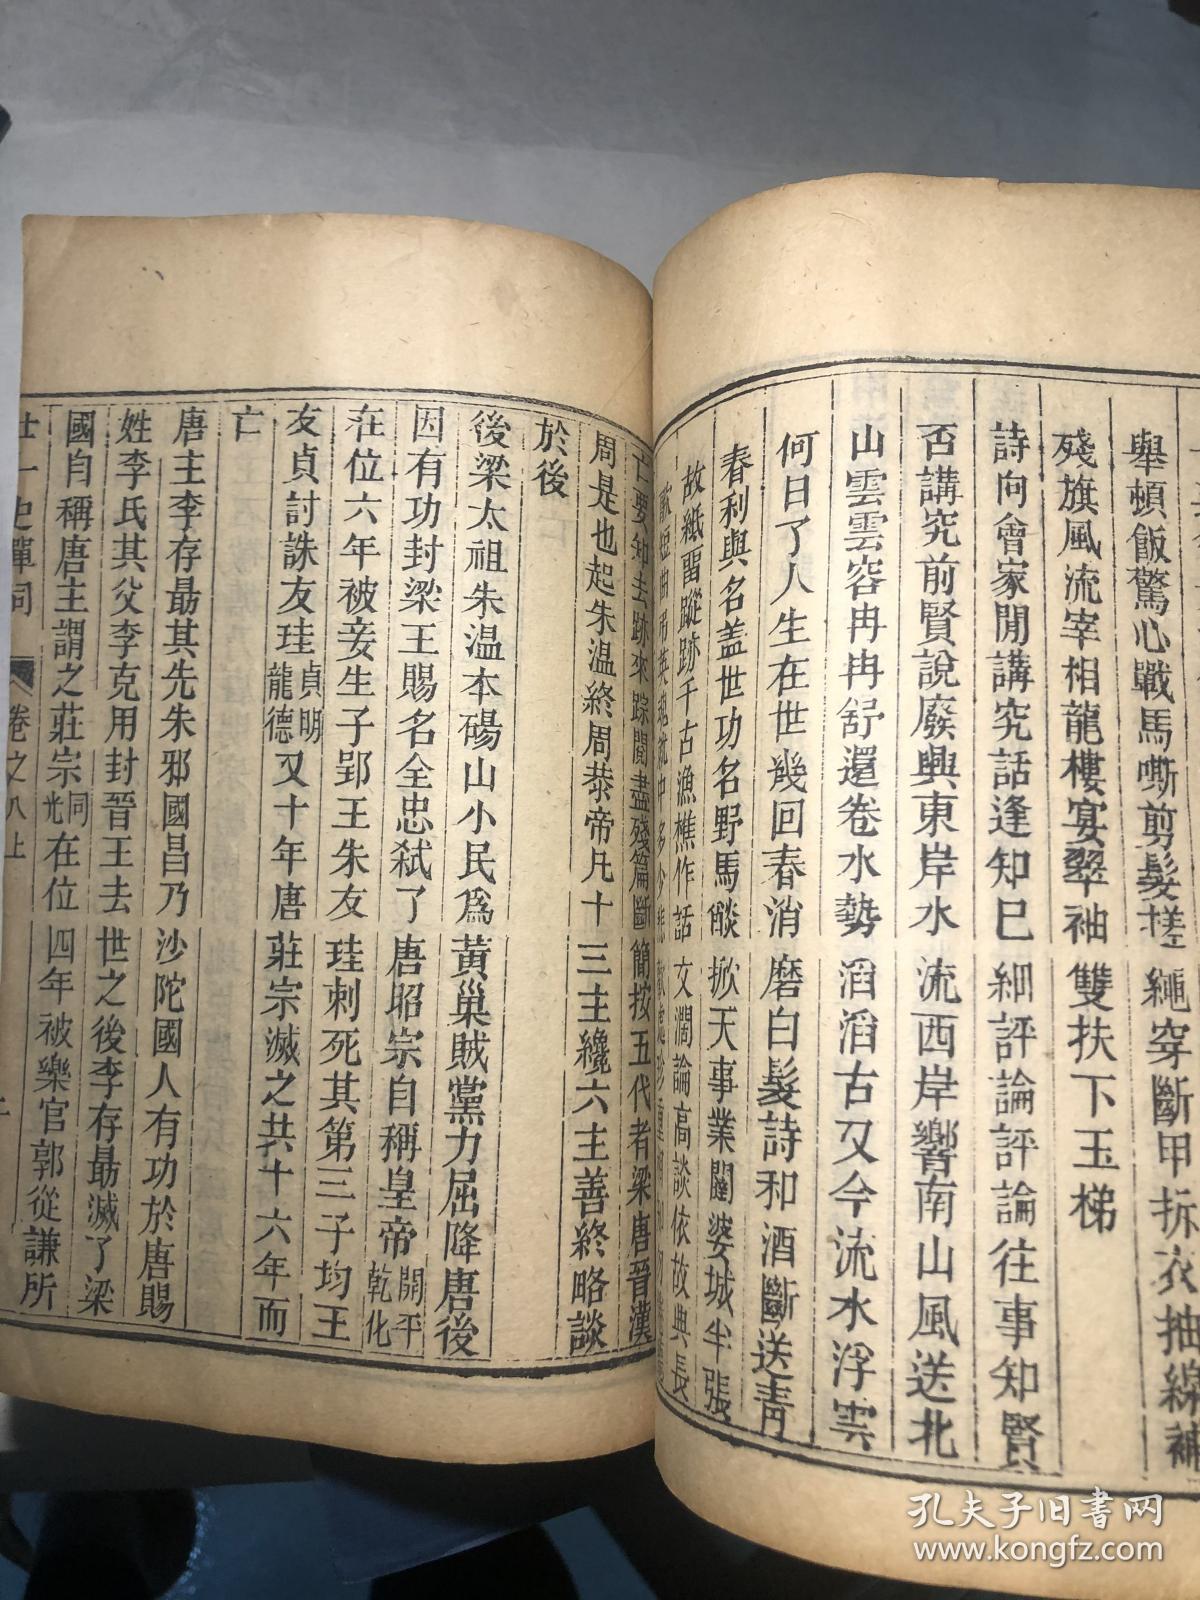 舉頓飯驚心戰馬嘶剪髮搓繩穿斷甲拆衣抽線補
殘旗風流宰相龍樓宴翠袖雙扶下玉梯
詩向會家閒講究話逢知己細評論評論往事知賢
否講究前賢說廢興東岸水流西岸響南山風送北
山雲雲容冉冉舒還卷水勢滔滔古又今流水浮雲
何日了人生在世幾回春消磨白髮詩和酒斷送青
春利與名蓋世功名野馬燄掀天事業闥婆城半張
故紙留蹤跡千古漁樵作話文濶論高談依故典長
歌短曲吊英魂就中多少悲歡處珍重
亡要知去跡來踪閱盡殘篇斷簡按五代者梁唐晉漢
周是也起朱温終周恭帝凡十三主纔六主善終略談
於後
後梁太祖朱温本碭山小民爲黃巢賊黨力屈降唐後
因有功封梁王賜名全忠弑了唐昭宗自稱皇帝開平乾化
在位六年被妾生子郢王朱友珪刺死其第三子均王
友貞討誅友珪貞明龍德又十年唐莊宗滅之共十六年而
亡
唐主李存朂其先朱邪國昌乃沙陀國人有功於唐賜
姓李氏其父李克用封晉王去世之後李存朂滅了梁
國自稱唐主謂之莊宗同光在位四年被樂官郭從謙所
廿一史彈詞 卷之八上
孔夫子旧书网
www.kongfz.com